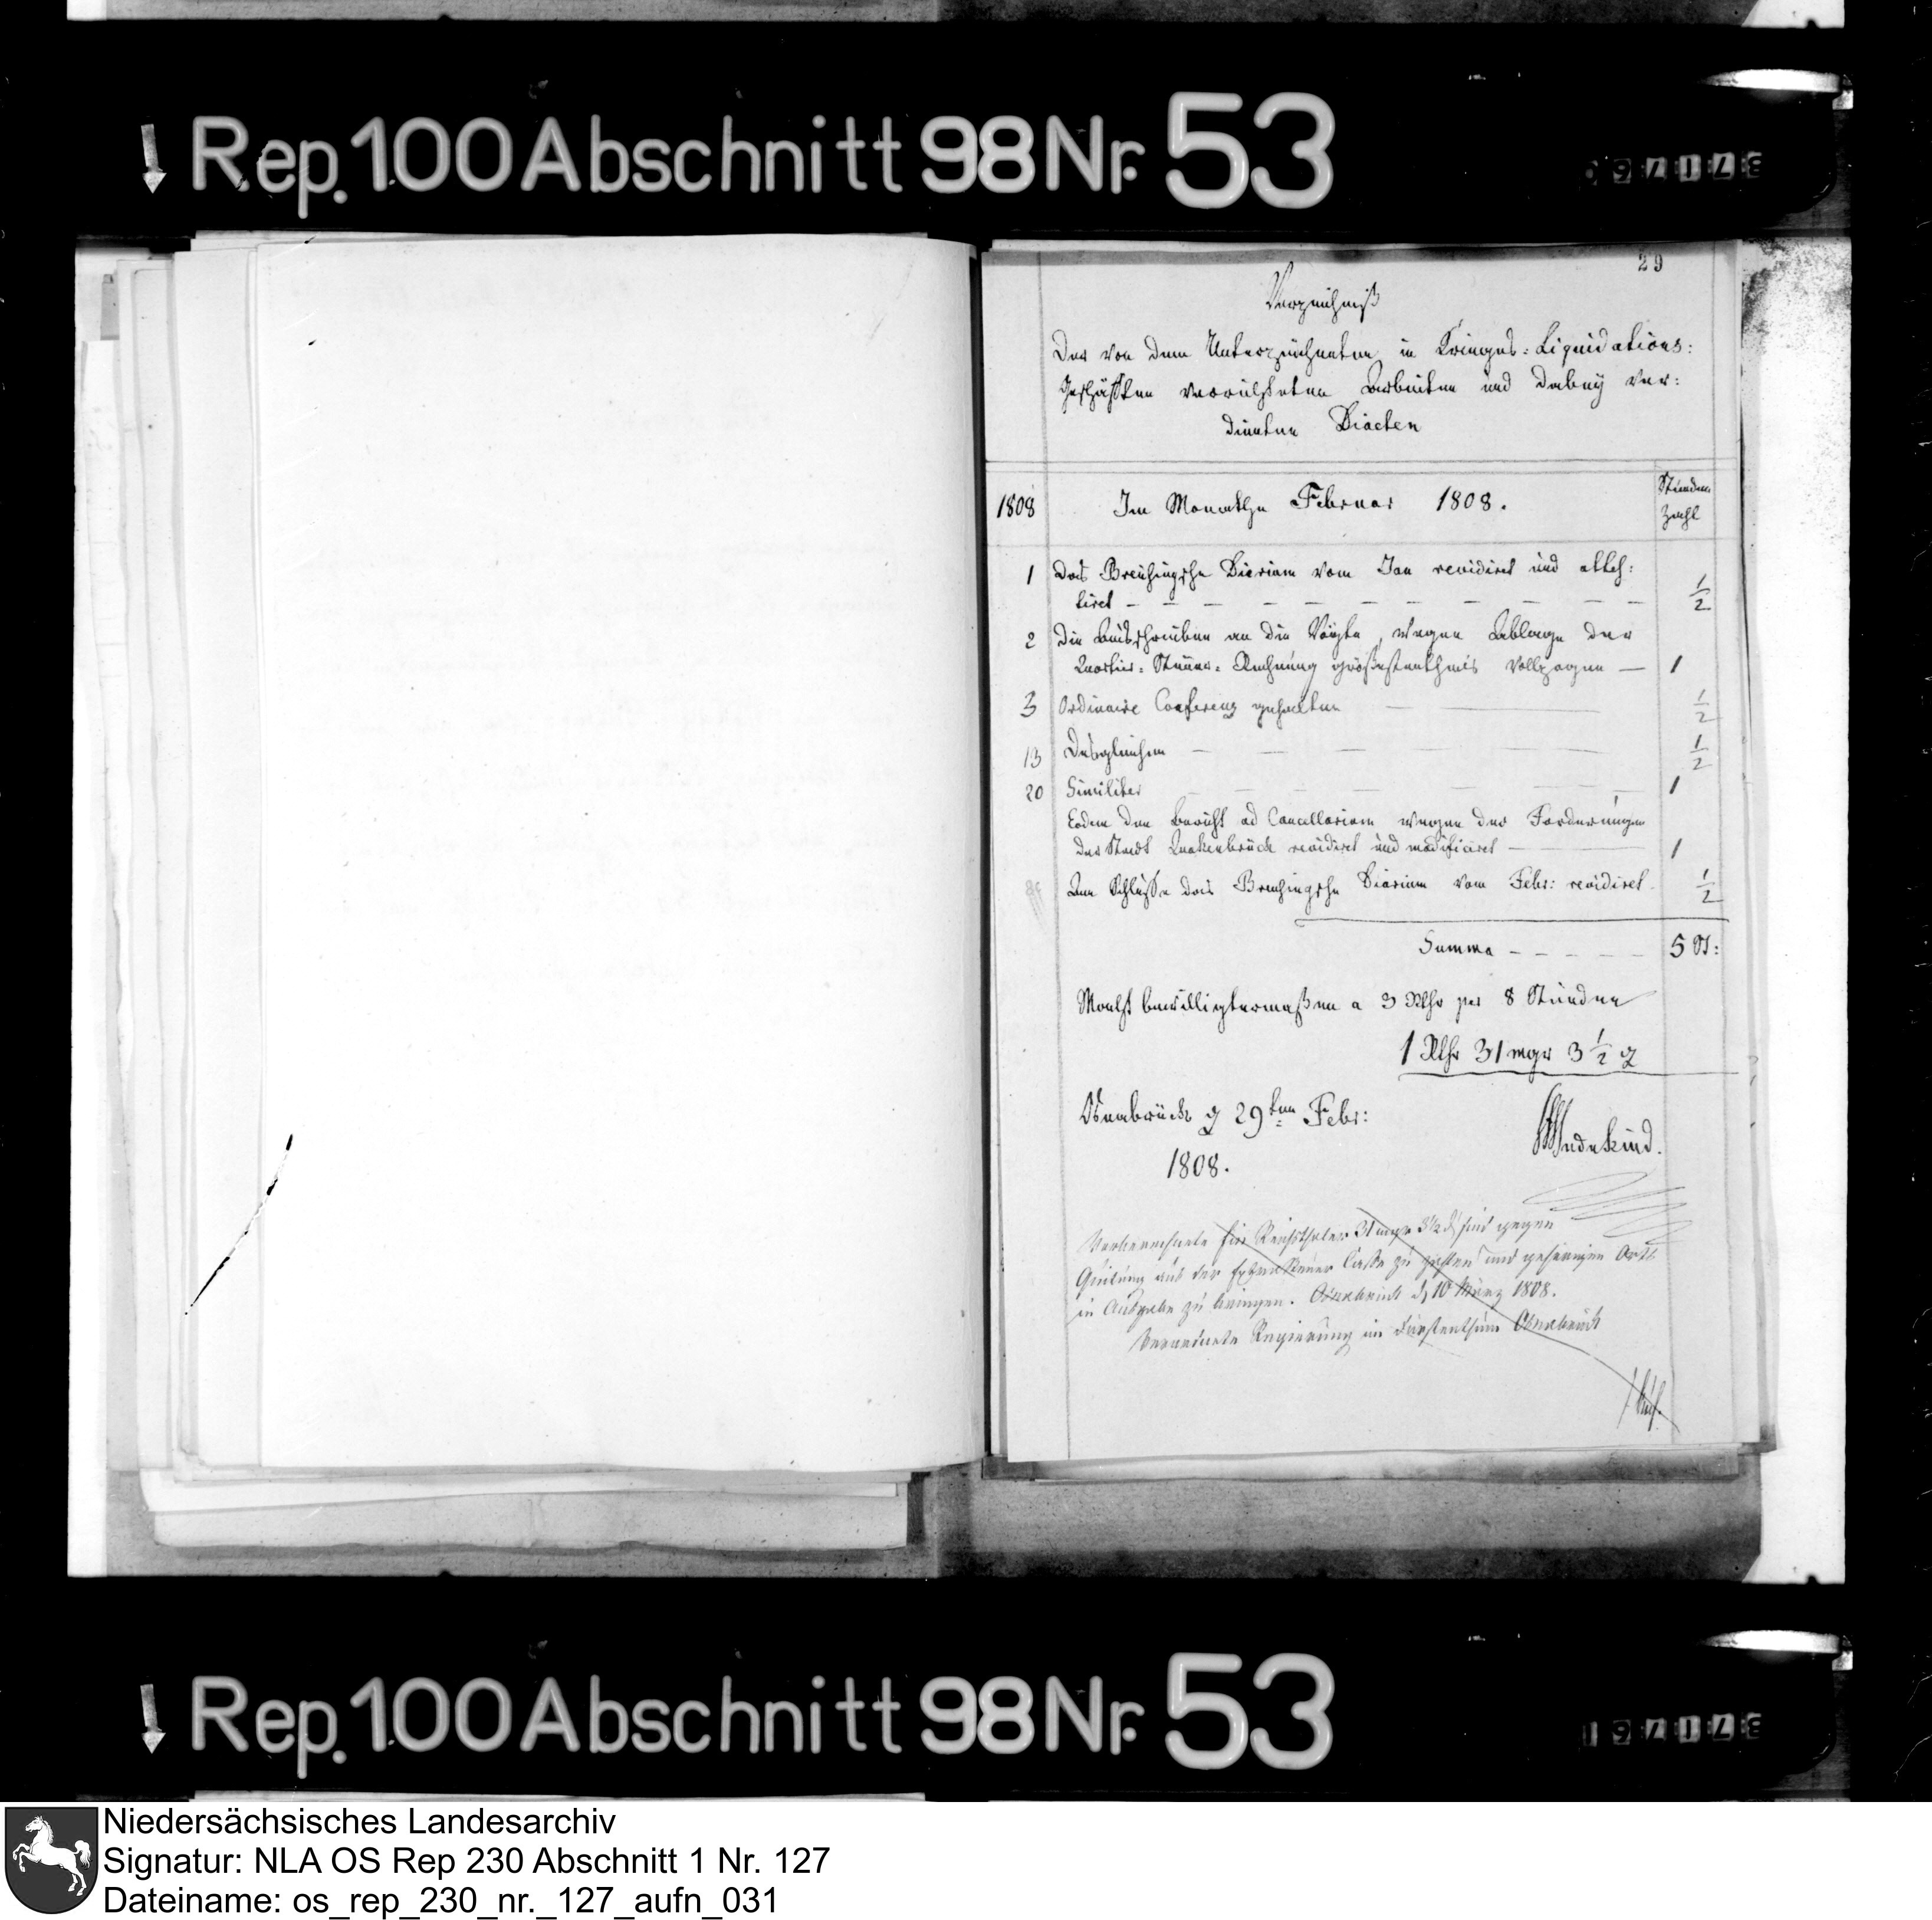 Rep. 100 Abschnitt 98 Nr. 53
29
Verzeichniß
Der von dem Unterzeichneten in Krieges-Liquidations-
Geschäften verrichteten Arbeiten und dabey ver-
dienten Diaeten
1808
Im Monathe Februar 1808.
Stunden
Zahl
1 Das Breusingsche Diarium vom Jan revidiret und attes-
tiret - - - - - - - - - - ½
2 Die Ausschreiben an die Voigte, wegen Ablage der
Quartier-Steuer-Rechnung größestentheils vollzogen — 1
3 Ordinaire Conferenz gehalten — — ½
13 Desgleichen — — — — ½
20 Similiter — — — — 1
Eodem den Bericht ad Cancellariam wegen der Forderungen
der Stadt Quakenbrück revidiret und modificiret — 1
Am Schlusse das Breusingsche Diarium vom Febr: revidiret. ½
Summa - - - - - 5 St:
Macht bewilligtermaßen a 3 Rthr per 8 Stunden
1 Rthr 31 mgr 3 ½ d
Osnabrück d 29ten Febr:
1808.
Wedekind.
Reichsthaler 31 mgr 3½ d sind gegen
Quitung aus der Extrasteuer Casse zu zahlen und gehörigen Orts
in Ausgabe zu bringen. Osnabrück d 10 März 1808.
Verordnete Regierung im Fürstenthum Osnabrück
Rep. 100 Abschnitt 98 Nr. 53
Niedersächsisches Landesarchiv
Signatur: NLA OS Rep 230 Abschnitt 1 Nr. 127
Dateiname: os_rep_230_nr._127_aufn_031